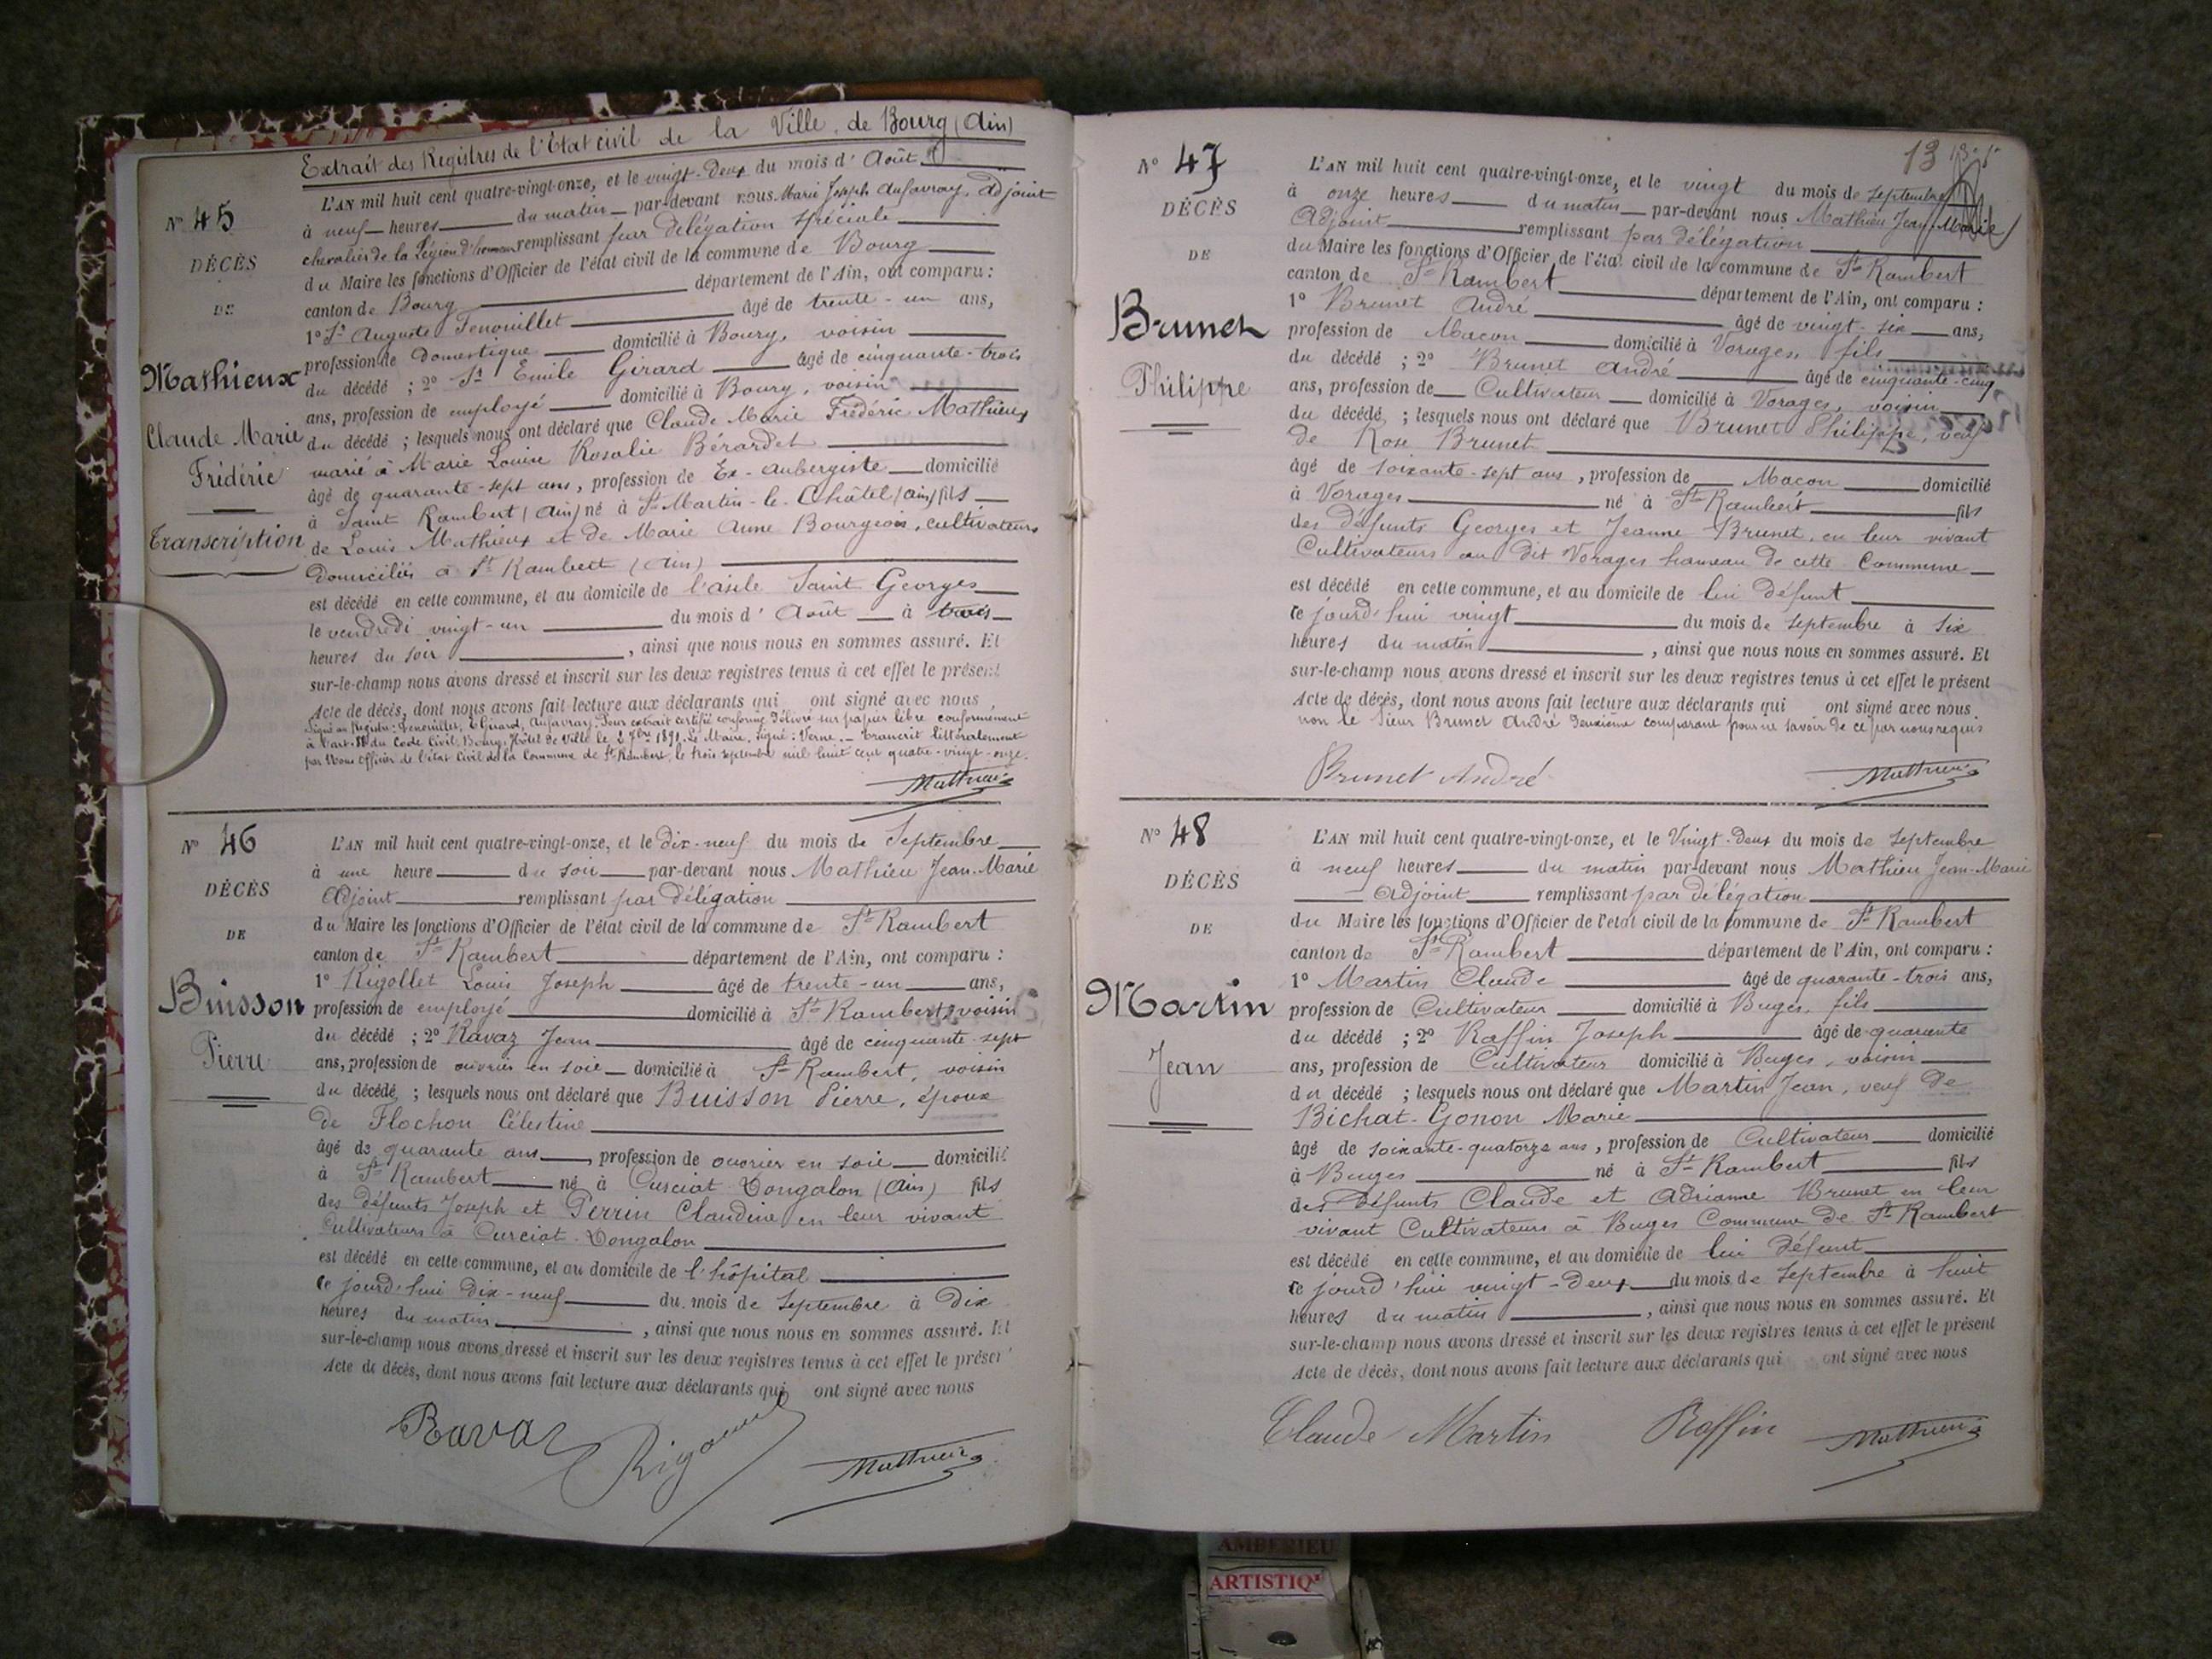 Extrait des Registres de l'État civil de la Ville de Bourg (Ain)
N° 45
DÉCÈS
DE
Mathieux
Claude Marie
Frédéric
Transcription
L'AN mil huit cent quatre-vingt-onze, et le vingt-deux du mois d'Août
à neuf heures du matin par-devant nous Marie Joseph Aufavray, adjoint
chevalier de la Légion d'honneur remplissant par délégation spéciale
du Maire les fonctions d'Officier de l'état civil de la commune de Bourg
canton de Bourg département de l'Ain, ont comparu :
1° St Auguste Fenouillet âgé de trente-un ans,
profession de domestique domicilié à Bourg, voisin
du décédé ; 2° St Emile Girard âgé de cinquante-trois
ans, profession de employé domicilié à Bourg, voisin
du décédé ; lesquels nous ont déclaré que Claude Marie Frédéric Mathieux
marié à Marie Louise Rosalie Bérardet
âgé de quarante-sept ans, profession de Ex-aubergiste domicilié
à Saint Rambert (Ain) né à St Martin-le-Châtel (Ain) fils
de Louis Mathieux et de Marie Anne Bourgeois, cultivateurs
domiciliés à St Rambert (Ain)
est décédé en cette commune, et au domicile de l'asile Saint Georges
le vendredi vingt-un du mois d'Août à trois
heures du soir, ainsi que nous nous en sommes assuré. Et
sur-le-champ nous avons dressé et inscrit sur les deux registres tenus à cet effet le présent
Acte de décès, dont nous avons fait lecture aux déclarants qui ont signé avec nous
Signé au Registre: Fenouillet, E Girard, Aufavray. Pour extrait certifié conforme délivré sur papier libre conformément
à l'art. 80 du Code Civil. Bourg, Hôtel de Ville le 2 7bre 1891. Le Maire, signé : Verne. — Transcrit littéralement
par Nous Officier de l'état Civil de la Commune de St Rambert, le trois septembre mil huit cent quatre-vingt-onze.
Mathieu
N° 46
DÉCÈS
DE
Buisson
Pierre
L'AN mil huit cent quatre-vingt-onze, et le dix-neuf du mois de Septembre
à une heure du soir par-devant nous Mathieu Jean-Marie
Adjoint remplissant par délégation
du Maire les fonctions d'Officier de l'état civil de la commune de St Rambert
canton de St Rambert département de l'Ain, ont comparu :
1° Rigollet Louis Joseph âgé de trente-un ans,
profession de employé domicilié à St Rambert, voisin
du décédé ; 2° Ravaz Jean âgé de cinquante-sept
ans, profession de ouvrier en soie domicilié à St Rambert, voisin
du décédé ; lesquels nous ont déclaré que Buisson Pierre, époux
de Flochon Célestine
âgé de quarante ans, profession de ouvrier en soie domicilié
à St Rambert né à Curciat Dongalon (Ain) fils
des défunts Joseph et Perrin Claudine en leur vivant
Cultivateurs à Curciat-Dongalon
est décédé en cette commune, et au domicile de l'hôpital
ce jourd'hui dix-neuf du mois de Septembre à Dix
heures du matin, ainsi que nous nous en sommes assuré. Et
sur-le-champ nous avons dressé et inscrit sur les deux registres tenus à cet effet le présen
Acte de décès, dont nous avons fait lecture aux déclarants qui ont signé avec nous
Ravaz
Mathieu
13
N° 47
DÉCÈS
DE
Brunet
Philippe
L'AN mil huit cent quatre-vingt-onze, et le vingt du mois de Septembre
à onze heures du matin par-devant nous Mathieu Jean-Marie
Adjoint remplissant par délégation
du Maire les fonctions d'Officier de l'état civil de la commune de St Rambert
canton de St Rambert département de l'Ain, ont comparu :
1° Brunet André âgé de vingt-six ans,
profession de Macon domicilié à Vorages, fils
du décédé ; 2° Brunet André âgé de cinquante-cinq
ans, profession de Cultivateur domicilié à Vorages, voisin
du décédé ; lesquels nous ont déclaré que Brunet Philippe, veuf
de Rose Brunet
âgé de soixante-sept ans, profession de Macon domicilié
à Vorages né à St Rambert fils
des défunts Georges et Jeanne Brunet, en leur vivant
Cultivateurs au dit Vorages hameau de cette Commune
est décédé en cette commune, et au domicile de lui défunt
ce jourd'hui vingt du mois de Septembre à Six
heures du matin, ainsi que nous nous en sommes assuré. Et
sur-le-champ nous avons dressé et inscrit sur les deux registres tenus à cet effet le présent
Acte de décès, dont nous avons fait lecture aux déclarants qui ont signé avec nous
non le Sieur Brunet André deuxième comparant pour ne savoir de ce par nous requis
Brunet André
Mathieu
N° 48
DÉCÈS
DE
Martin
Jean
L'AN mil huit cent quatre-vingt-onze, et le Vingt-deux du mois de Septembre
à neuf heures du matin par-devant nous Mathieu Jean-Marie
Adjoint remplissant par délégation
du Maire les fonctions d'Officier de l'état civil de la commune de St Rambert
canton de St Rambert département de l'Ain, ont comparu :
1° Martin Claude âgé de quarante-trois ans,
profession de Cultivateur domicilié à Buges, fils
du décédé ; 2° Raffin Joseph âgé de quarante
ans, profession de Cultivateur domicilié à Buges, voisin
du décédé ; lesquels nous ont déclaré que Martin Jean, veuf de
Bichat-Gonon Marie
âgé de soixante-quatorze ans, profession de Cultivateur domicilié
à Buges né à St Rambert fils
des défunts Claude et Adrianne Brunet en leur
vivant Cultivateurs à Buges Commune de St Rambert
est décédé en cette commune, et au domicile de lui défunt
ce jourd'hui vingt-deux du mois de Septembre à huit
heures du matin, ainsi que nous nous en sommes assuré. Et
sur-le-champ nous avons dressé et inscrit sur les deux registres tenus à cet effet le présent
Acte de décès, dont nous avons fait lecture aux déclarants qui ont signé avec nous
Claude Martin Raffin Mathieu
AMBERIEU
ARTISTIQ